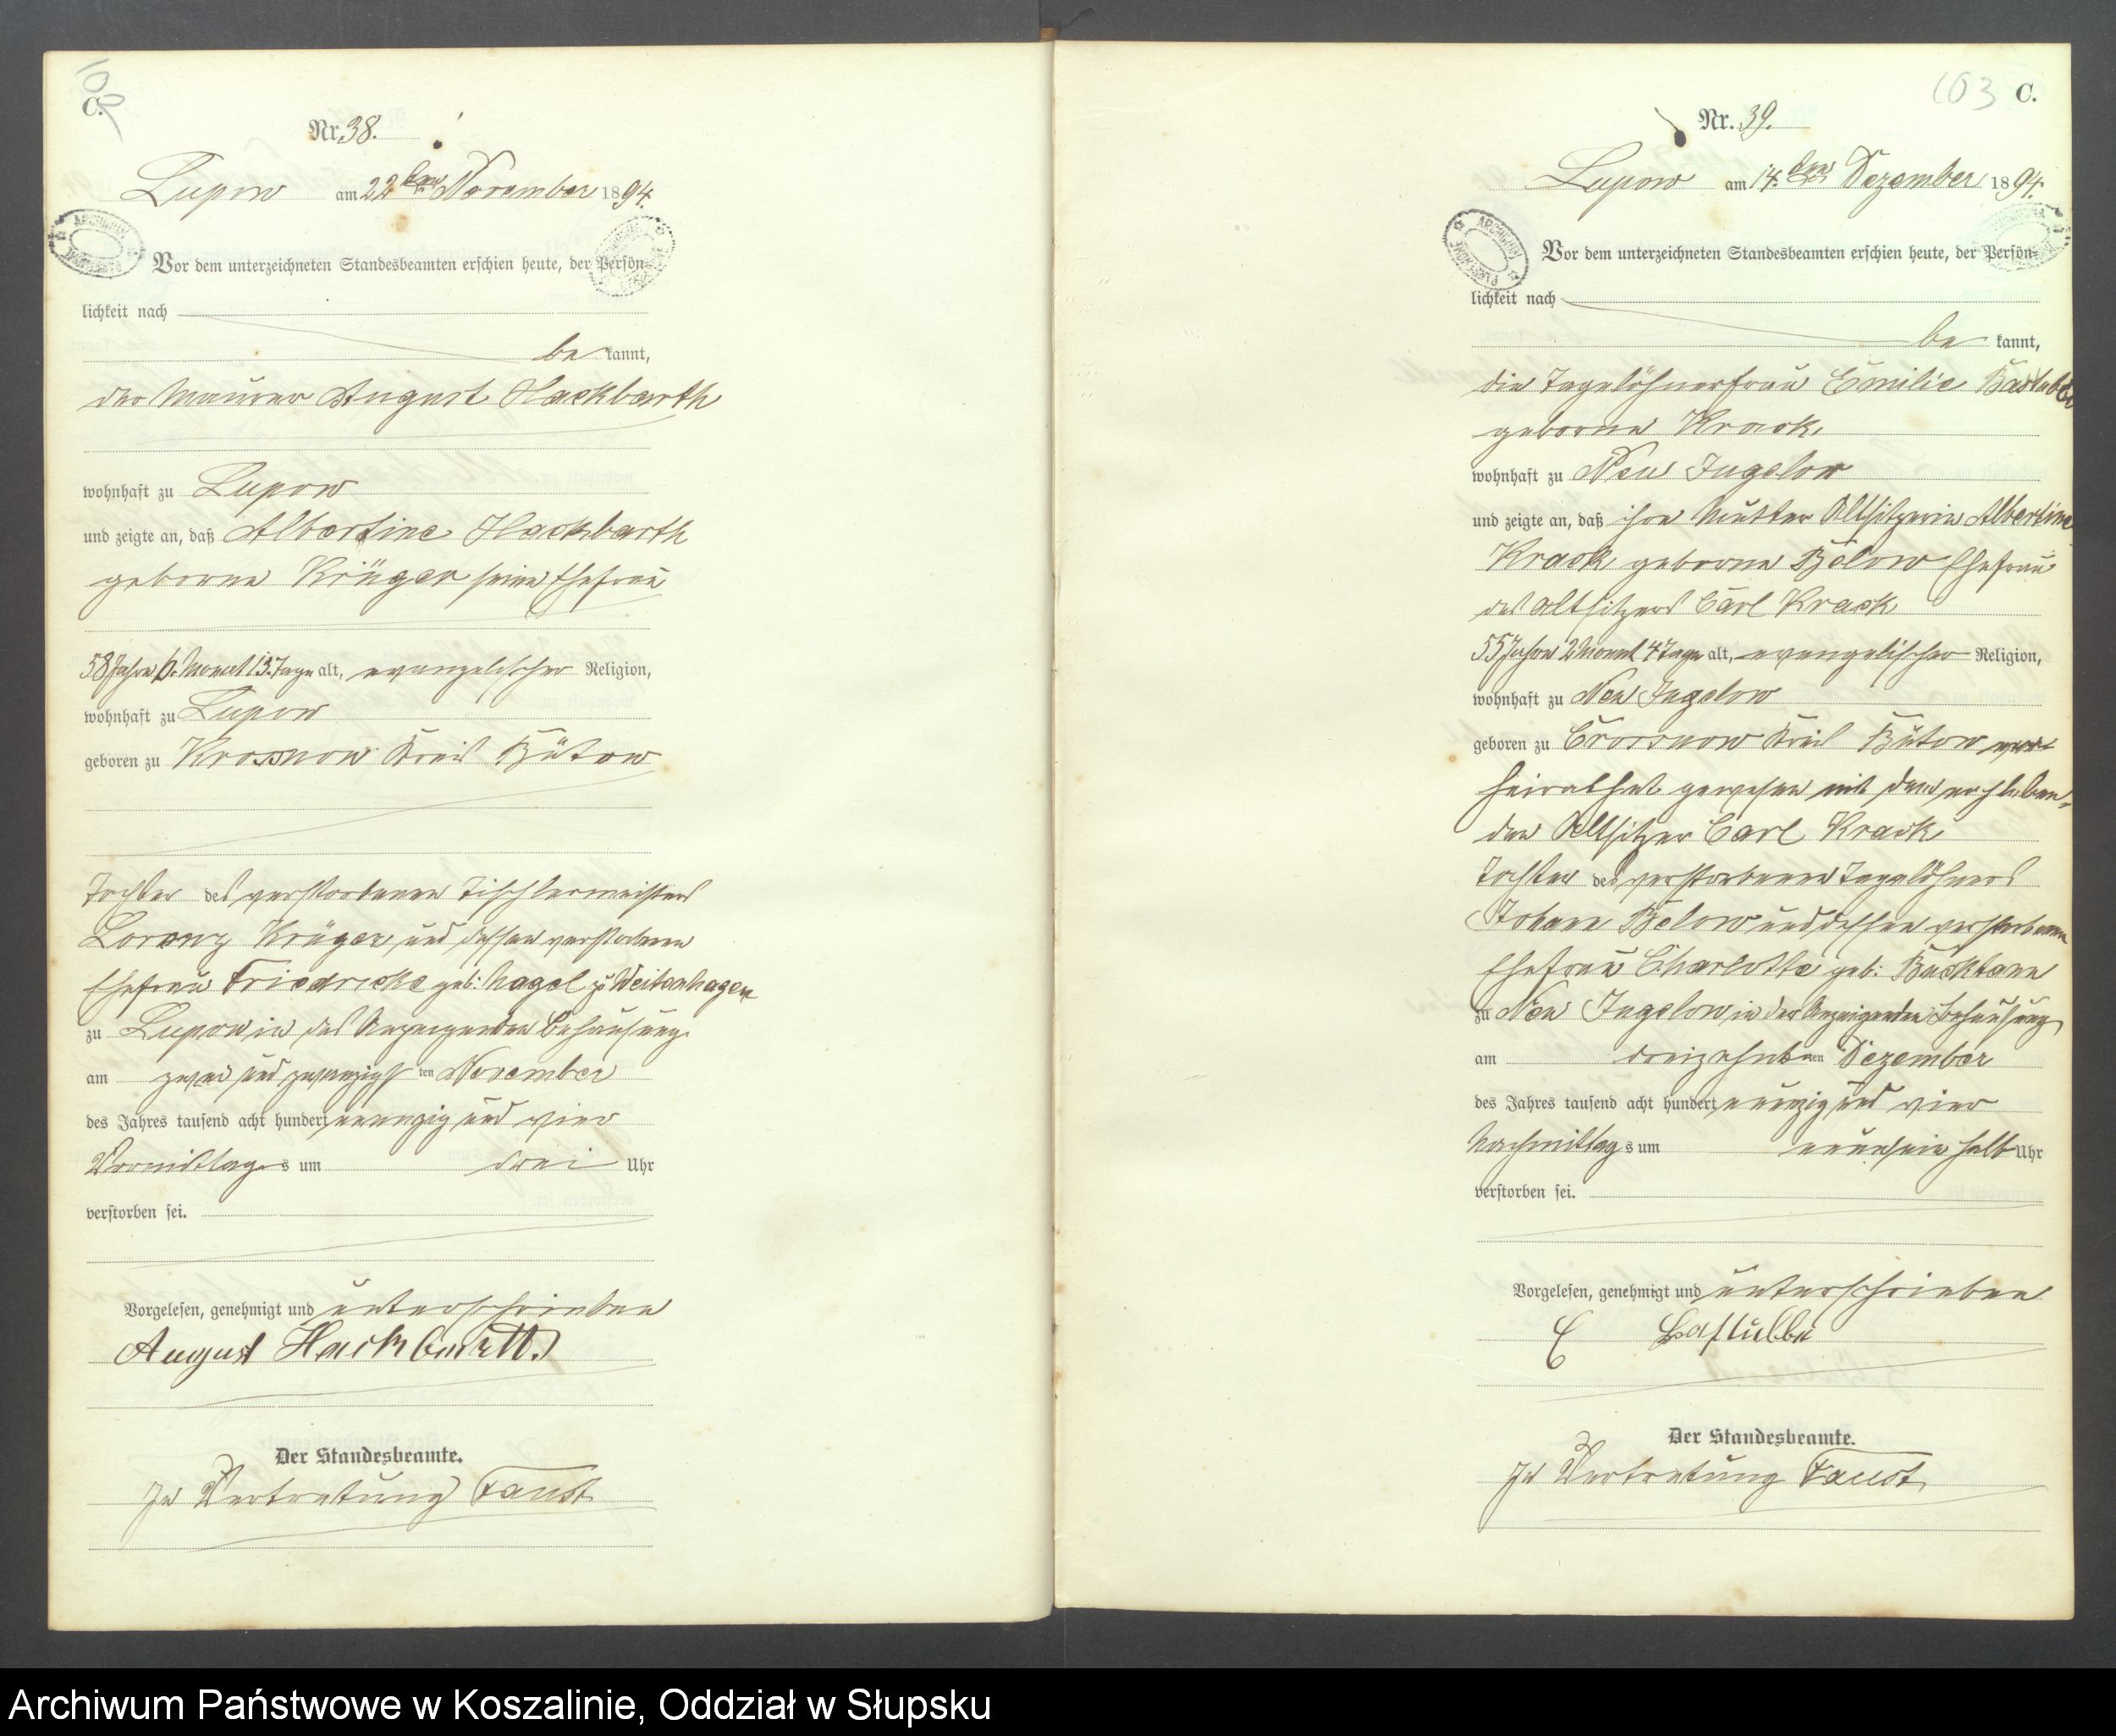 102
C.
Nr. 38.
Lupow am 22ten November 1894.
Vor dem unterzeichneten Standesbeamten erschien heute, der Persön-
lichkeit nach
be kannt,
der Maurer August Hackbarth
wohnhaft zu Lupow
und zeigte an, daß Albertine Hackbarth
geborne Krüger seine Ehefrau
58 Jahre 6 Monat 13 Tage alt, evangelischer Religion,
wohnhaft zu Lupow
geboren zu Krossnow Kreis Bütow
Tochter des verstorbenen Tischlermeisters
Lorenz Krüger und dessen verstorbenen
Ehefrau Friedricke geb: Nagel zu Weitenhagen
zu Lupow in des Anzeigenden Behausung
am zwei und zwanzigsten November
des Jahres tausend acht hundert neunzig und vier
Vormittags um drei Uhr
verstorben sei.
Vorgelesen, genehmigt und unterschrieben
August Hackbarth
Der Standesbeamte.
In Vertretung Faust
103 C.
Nr. 39.
Lupow am 14. ten Dezember 1894.
Vor dem unterzeichneten Standesbeamten erschien heute, der Persön-
lichkeit nach
be kannt,
die Tagelöhnerfrau Emilie Bastubbe
geborne Krack,
wohnhaft zu Neu Jugelow
und zeigte an, daß ihre Mutter Altsitzerin Albertine
Krack, geborne Below Ehefrau
des Altsitzers Carl Krack
55 Jahre 2 Monat 4 Tage alt, evangelischer Religion,
wohnhaft zu Neu Jugelow
geboren zu Crossnow Kreis Bütow ver-
heirathet gewesen mit dem nachleben-
den Altsitzer Carl Krack
Tochter des verstorbenen Tagelöhners
Johann Below und dessen verstorbenen
Ehefrau Charlotte geb:
zu Neu Jugelow in der Anzeigenden Behausung
am dreizehnten Dezember
des Jahres tausend acht hundert neunzig und vier
Nachmittags um neunein halb Uhr
verstorben sei.
Vorgelesen, genehmigt und unterschrieben
E Bastubbe
Der Standesbeamte.
In Vertretung Faust
Archiwum Państwowe w Koszalinie, Oddział w Słupsku